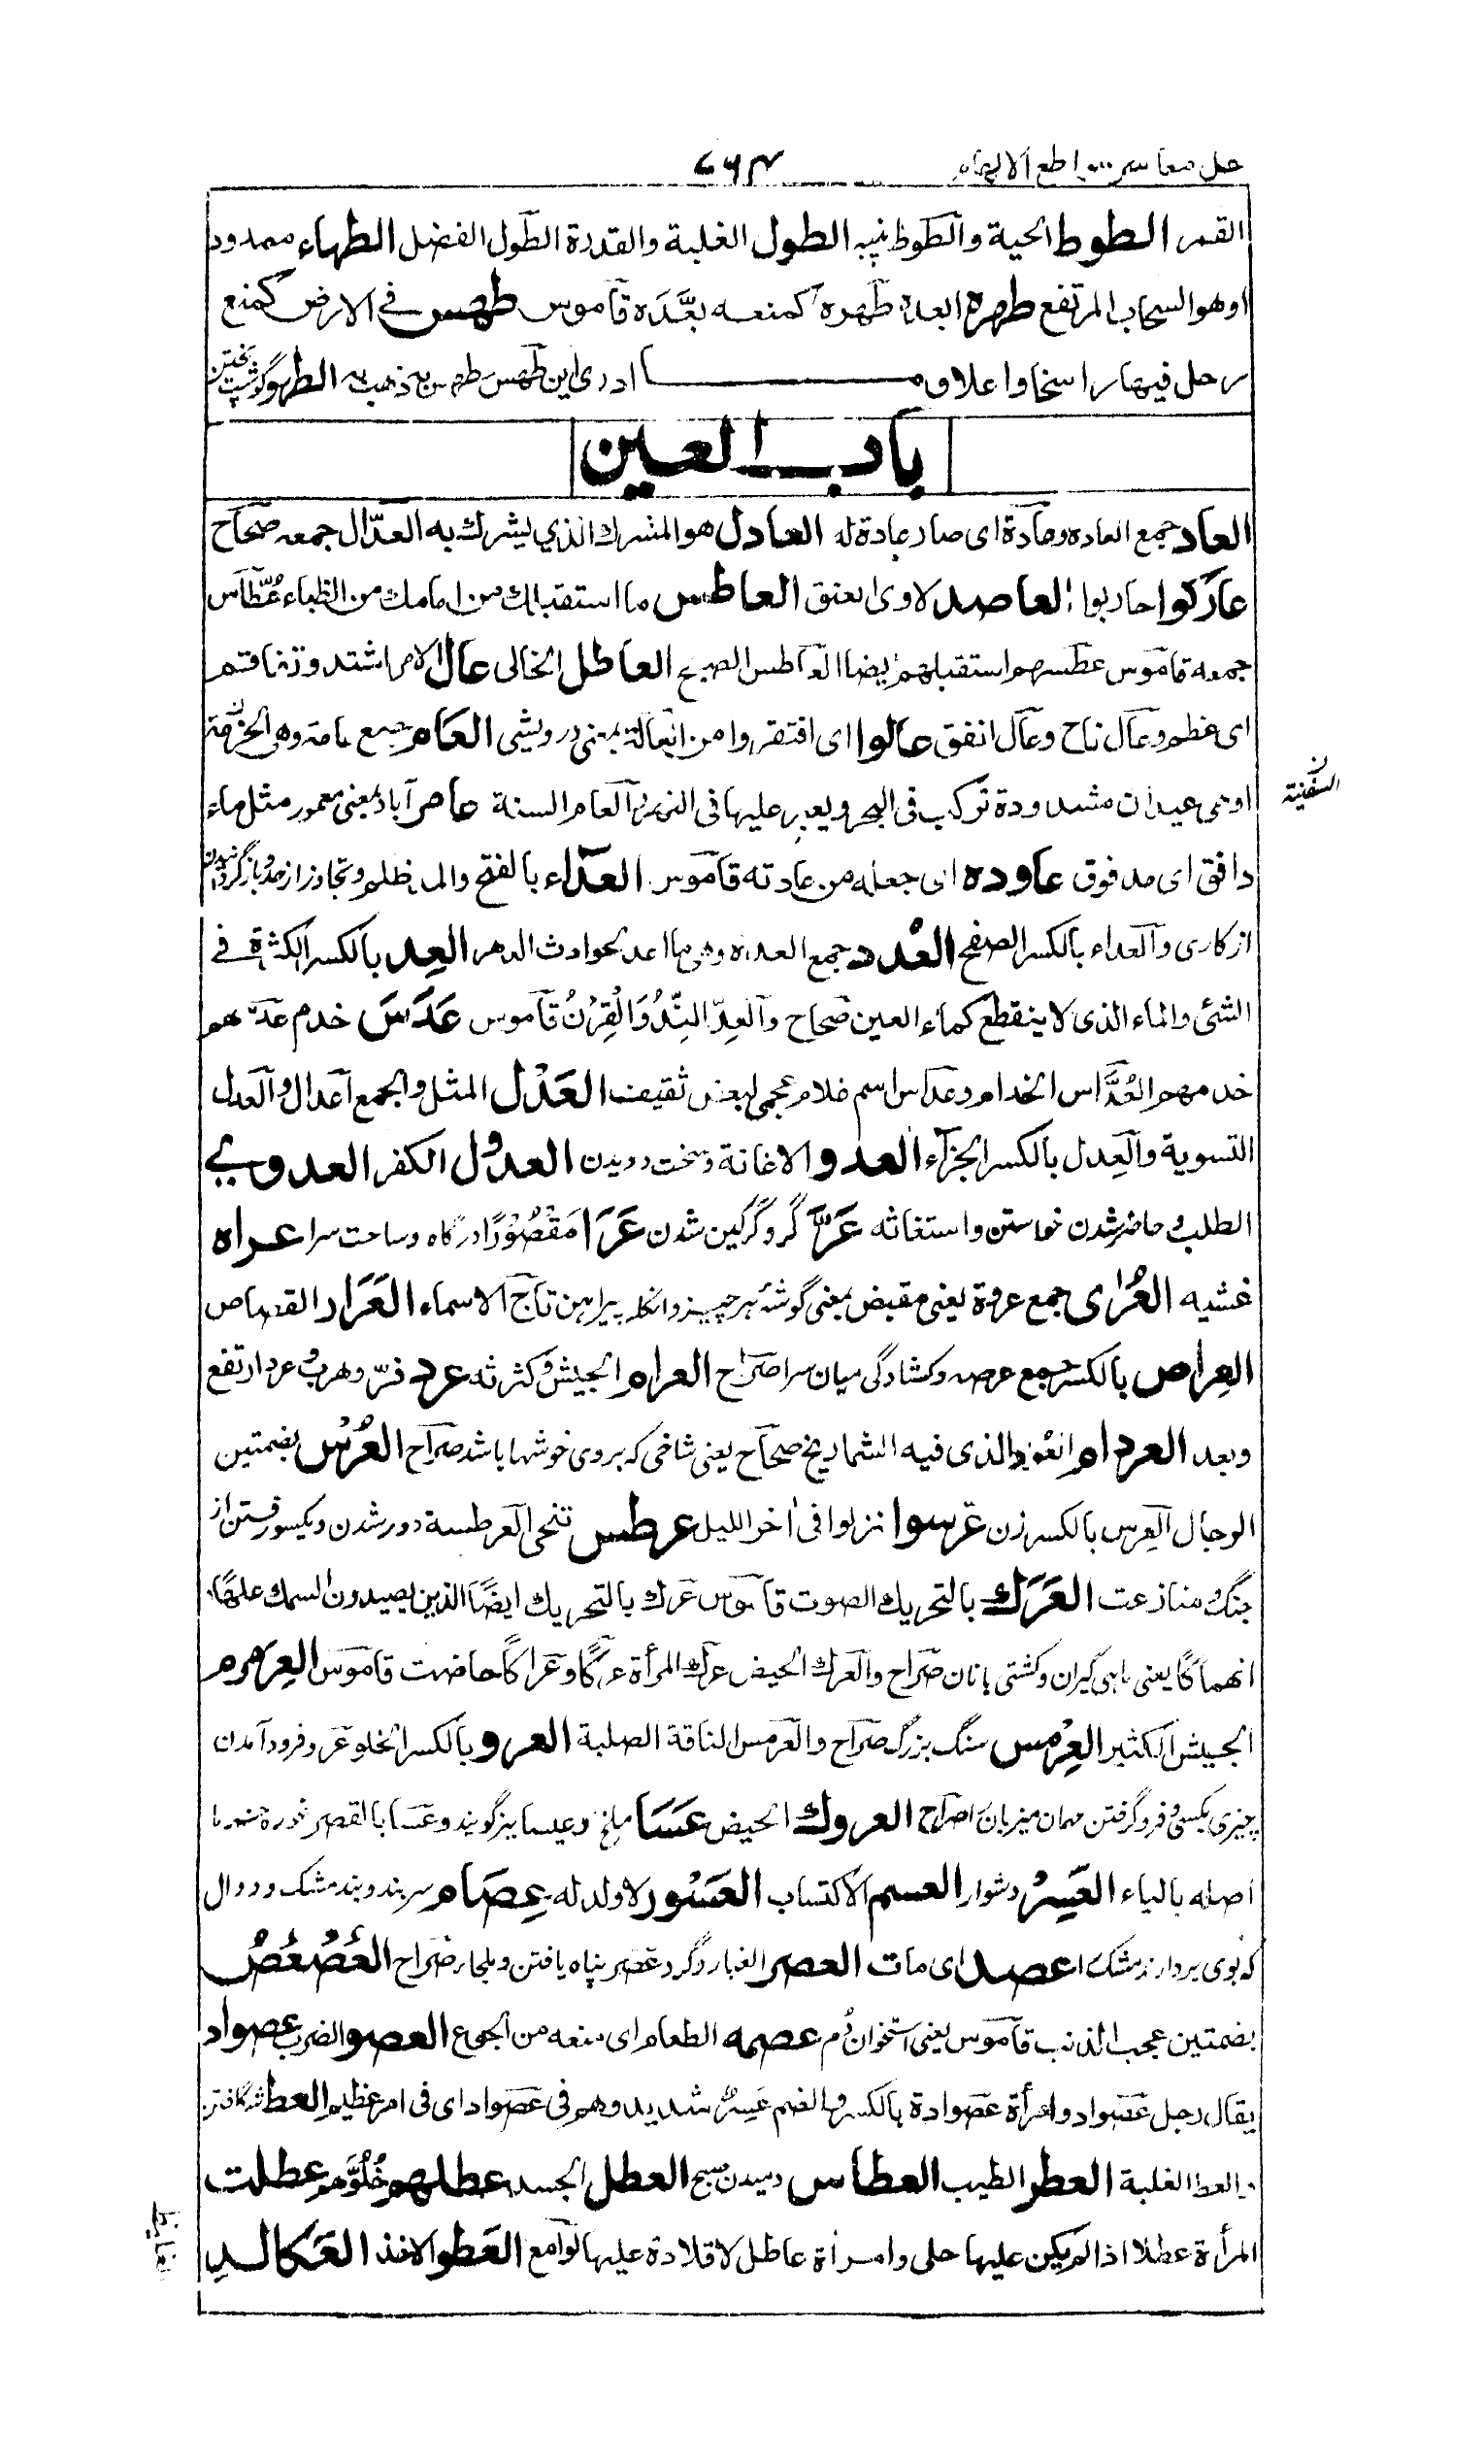 حل معاسر سواطع الالهام ۷۶۴
القمر الطوط الحية والطوط پنبه الطول الغلبة والقدرة الطول الفضل الطهاء ممدود
اوهو السحاب المرتفع طهرة ابعده طهره كمنعه بعَّدَه قاموس طهس فى الارض كمنع
رحل فيها راسخا واعلاق ما ادرى اين طهس طهس به ذهب به الطهو گوشت پختن
باب العين
العاد جمع العاده وعادة اى صار عادة له العادل هو المشرك الذى يشرك به العدّال جمعه صحاح
عاركوا حاربوا العاصد لاوى العنق العاطس ما استقبلك من امامك من الظباء عُطّاس
جمعه قاموس عطسهم استقبلهم ايضا العاطس الصبح العاطل الخالى عال الامر اشتد وتفاقم
اى عظم وعال ناح وعال انفق عالوا اى افتقروا من العالة بمعنى درويشى العام جمع عامة وهى الحزمة
السفينة
اوهى عيدان مشدودة تركب فى البحر ويعبر عليها فى النهر العام السنة عامر آباد بمعنى معمور مثل ماء
دافق اى مدفوق عاوده اى جعله من عادته قاموس العداء بالفتح والمد ظلم وتجاوز از حد و بازگردانیدن
از كارى والعداء بالكسر الصفح العُدد جمع العده وهى ما اعد لحوادث الدهر العِد بالكسر الكثرة فى
الشئ والماء الذى لا ينقطع كماء العين صحاح والعِدّ النِّدُّ وَالْقِرْنُ قاموس عَدَسَ خدم عدسهم
خدمهم العُدَّاس الخدام وعداس اسم غلام عجمى لبعض ثقيف العَدْل المثل والجمع اعدال والعدل
التسوية والعِدل بالكسر الجزاء العدو الاغاثة وسخت دويدن العدول الكفر العدوى
الطلب و حاضر شدن خواستن واستغاثه عَرّ گر و گرگين شدن عَرَا مَقْصُوْرًا درگاه وساحت سرا عراه
غشيه العُرٰى جمع عروة يعنى مقبض بمعنى گوشۀ هر چيز وانگله پيراهن تاج الاسماء العَرَار القصاص
العِراص بالكسر جمع عرصه وكشادگى ميان سرا صراح العرام الجيش وكثرته عرد فرّ وهرب و عرد ارتفع
وبعد العردام العذق الذى فيه الشماريخ صحاح يعنى شاخى كه بروى خوشها باشد صراح العُرُس بضمتين
الرجال العِرس بالكسر زن عرّسوا نزلوا فى اٰخر الليل عرطس تنحى العرطسة دور شدن ويكسو رفتن از
جنگ و منازعت العَرَك بالتحريك الصوت قاموس عرك بالتحريك ايضًا الذين يصيدون السمك
يعنى ماهى گيران و كشتى بانان صراح والعرك الحيض عركت المرأة عركًا وعراكًا حاضت قاموس العرمرم
الجيش الكثير العِرْمس سنگ بزرگ صراح والعرمس الناقة الصلبة العرو بالكسر الخلو عرو فرود آمدن
چيزى بكسى و فرو گرفتن مهمان ميزبان را صراح العروك الحيض عَسَا ملخ وعيسا نيز گويند وعسا بالقصر غوره خرما
اصله بالياء العَسِرُ دشوار العسم الاكتساب العَسُور لا ولد له عِصَام سربند و بند مشك و دوال
كه بوى بردارند مشك را عصد اى مات العصر الغبار وگرد عصر پناه يافتن وملجا صراح العُصُعُص
بضمتين عجب الذنب قاموس يعنى استخوان دُم عصمه الطعام اى منعه من الجوع العصو الضرب عصواد
يقال رجل عصواد وامرأة عصوادة بالكسر والضم عَسِرٌ شديد وهم فى عصواد اى فى امر عظيم العط شگافتن
والعط الغلبة العطر الطيب العطاس دميدن صبح العطل الجسد عطلهم خُلُوَّهم عطلت
المرأة عطلا اذا لم يكن عليها حلى وامرأة عاطل لا قلادة عليها لوامع العَطو الاخذ العكالد